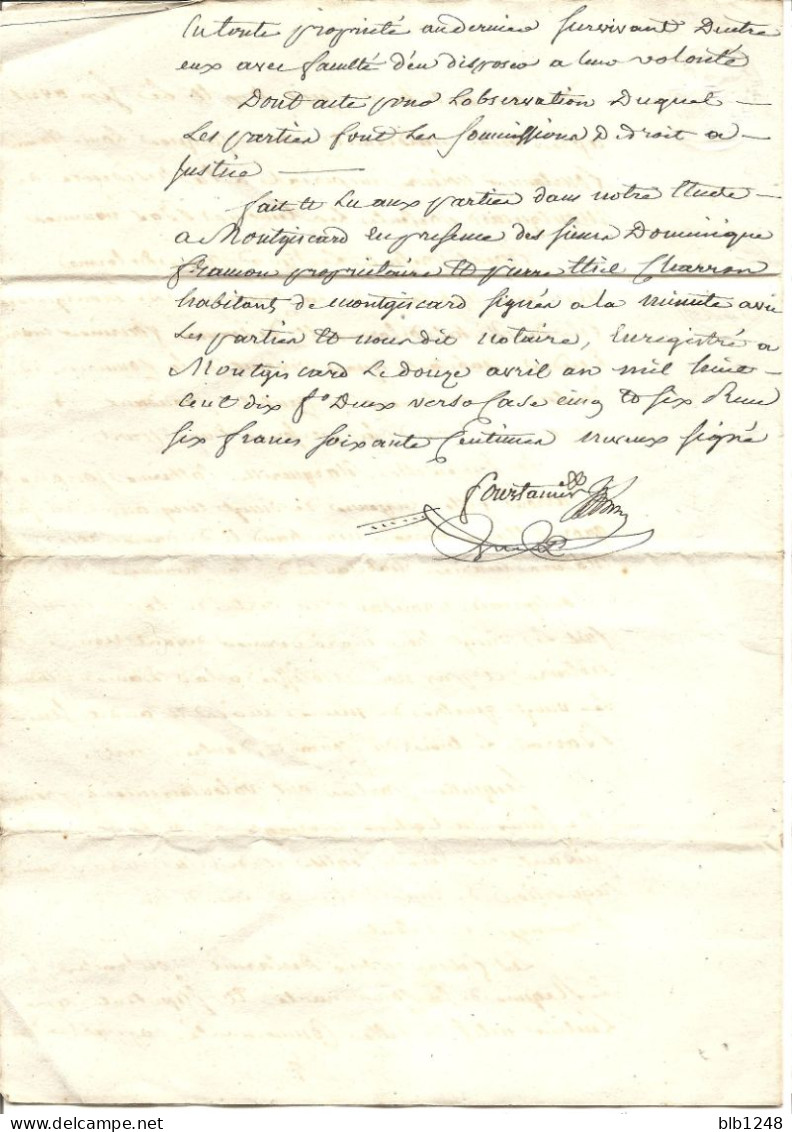 En toute propriété au dernier survivant D'entre
eux avec faculté d'en disposer a leur volonté
Dont acte pour L'observation Duquel —
Les parties font Les soumissions De droit a —
justice —
fait et Lu aux parties dans notre Etude —
a Montgiscard En presence des sieurs Dominique
Ramon proprietaire et pierre Charron
habitants de montgiscard signés a la minute avec
Les parties et nous dit notaire, Enregistré a
Montgiscard Le douze avril an mil huit
cent dix f° Deux verso Case cinq et six Reçu
six francs soixante Centimes signé
blb1248